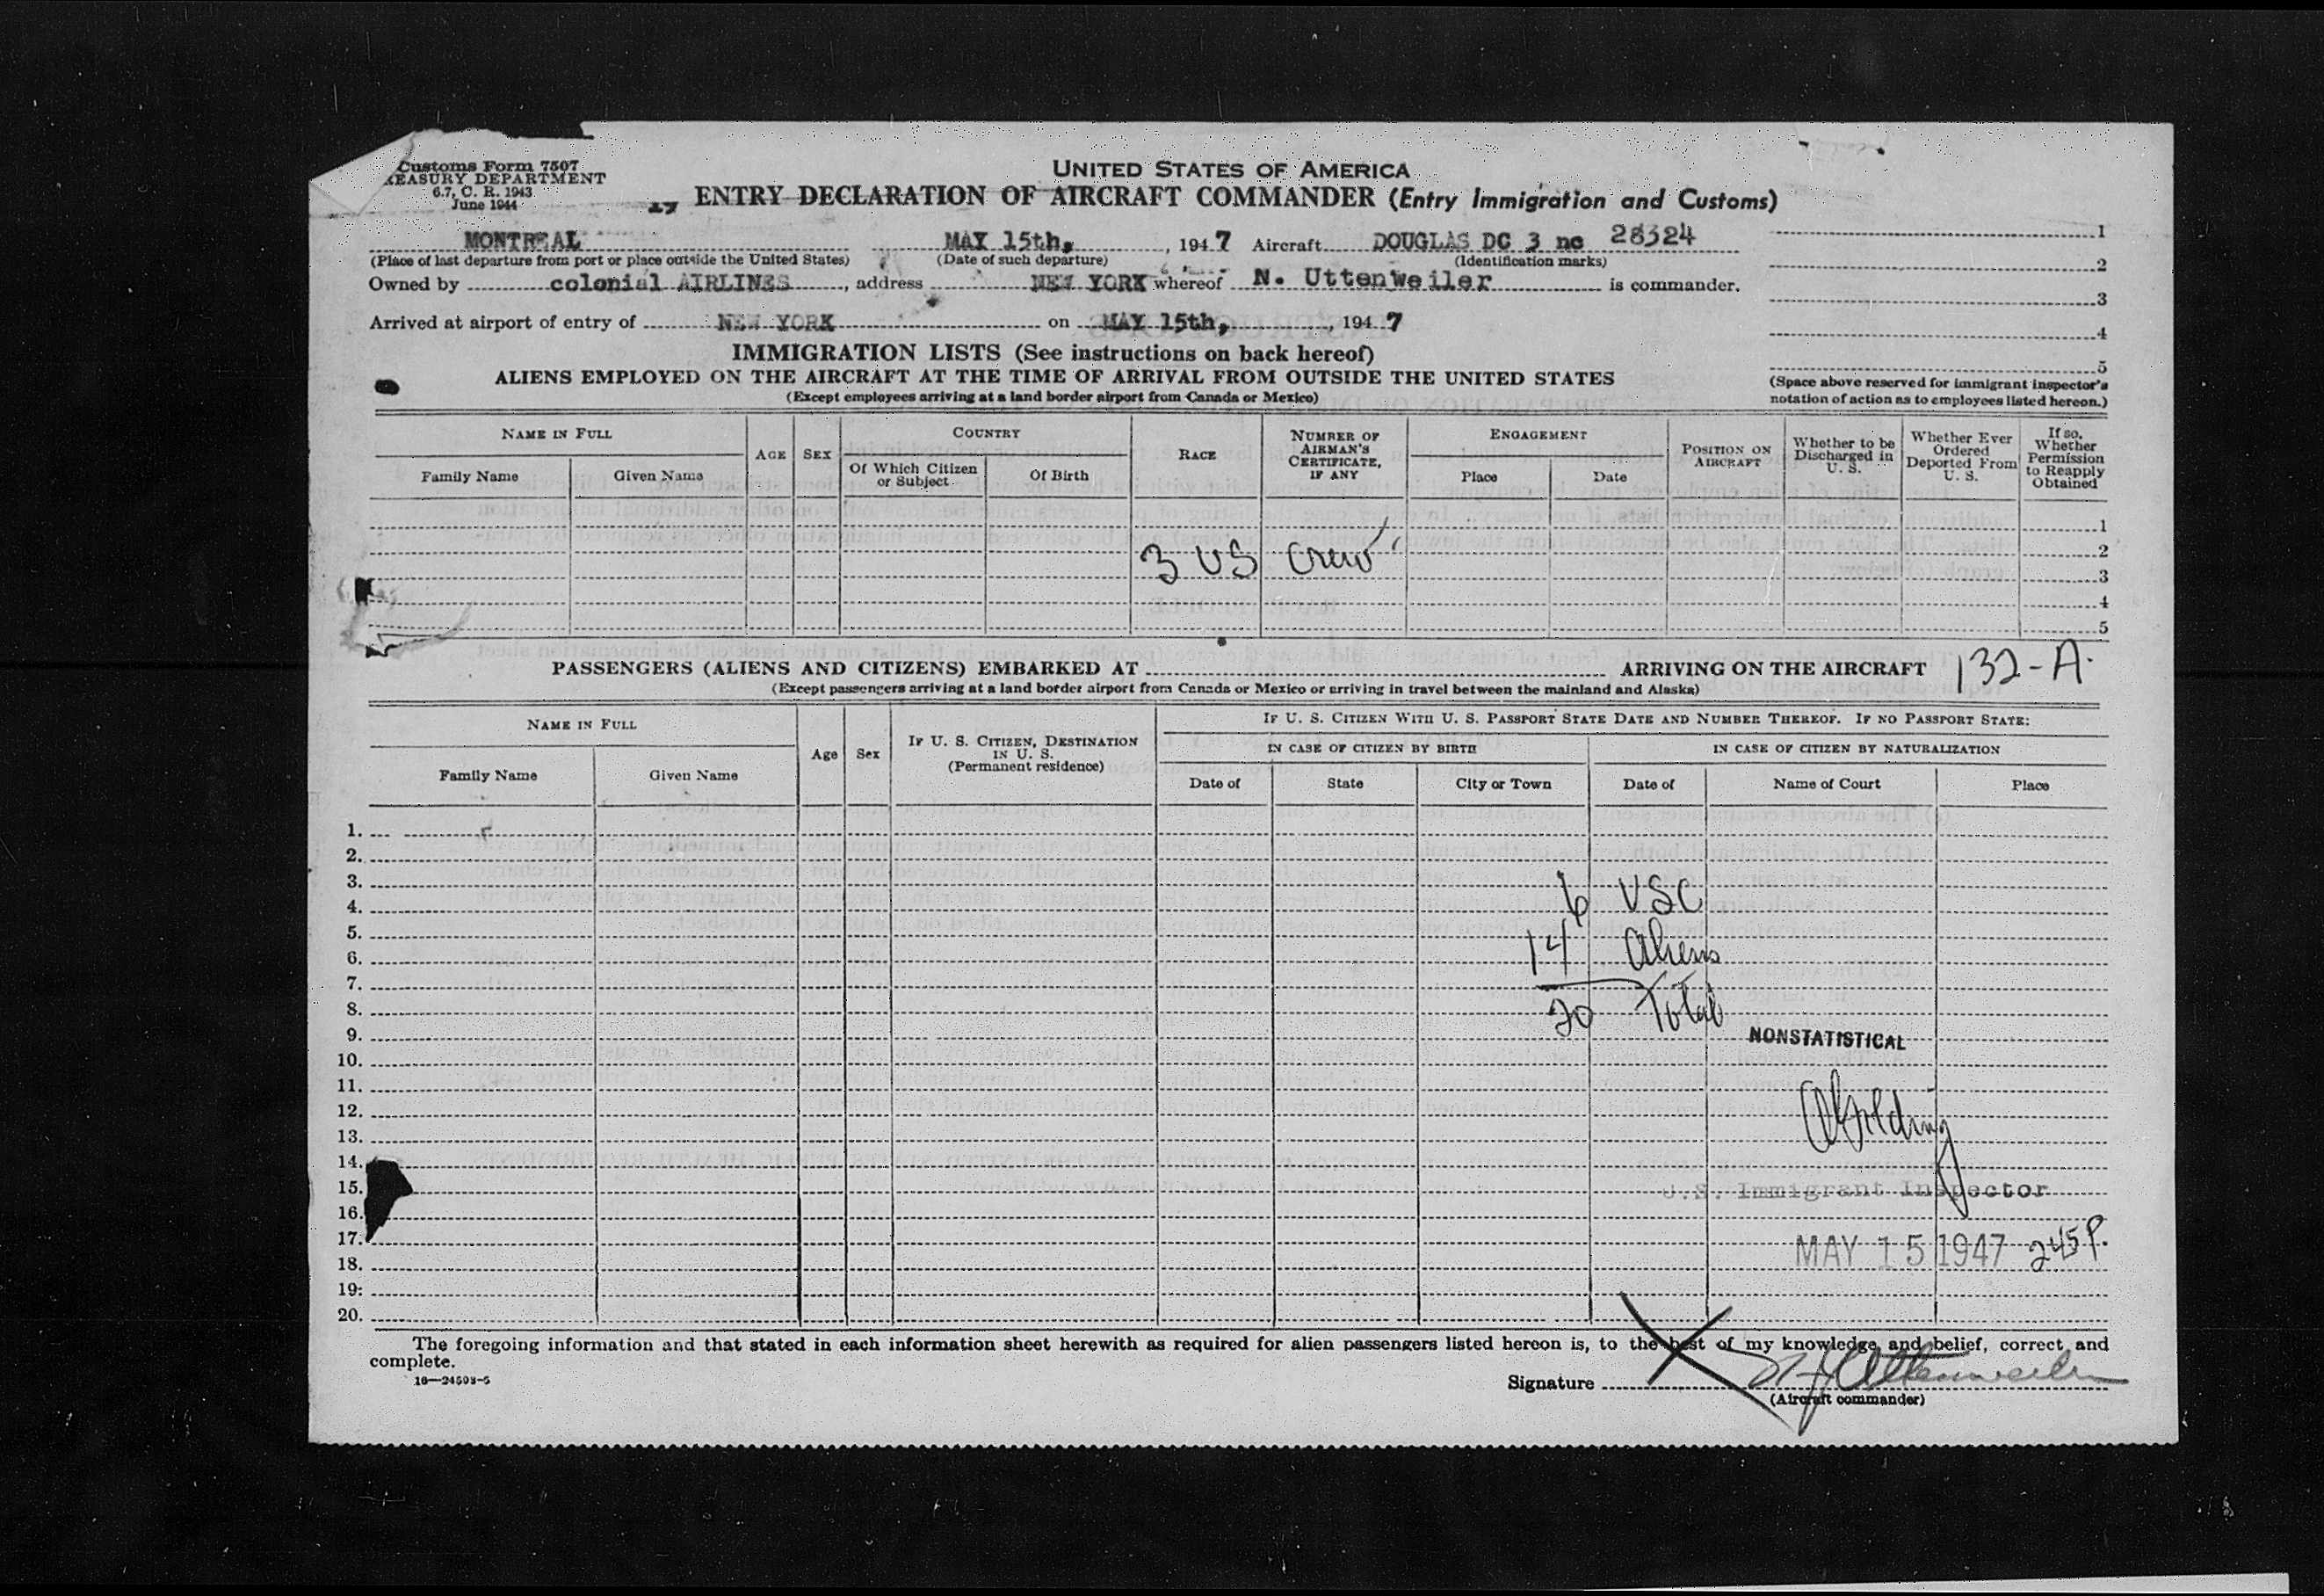 Customs Form 7507
TREASURY DEPARTMENT
6.7, C. R. 1943
June 1944
UNITED STATES OF AMERICA
ENTRY DECLARATION OF AIRCRAFT COMMANDER (Entry Immigration and Customs)
MONTREAL MAY 15th, , 1947 Aircraft DOUGLAS DC 3 nc 28324
(Place of last departure from port or place outside the United States) (Date of such departure) (Identification marks)
Owned by colonial AIRLINES, address NEW YORK whereof N. Uttenweiler is commander.
Arrived at airport of entry of NEW YORK on MAY 15th, , 1947
1
2
3
4
5
(Space above reserved for immigrant inspector's
notation of action as to employees listed hereon.)
IMMIGRATION LISTS (See instructions on back hereof)
ALIENS EMPLOYED ON THE AIRCRAFT AT THE TIME OF ARRIVAL FROM OUTSIDE THE UNITED STATES
(Except employees arriving at a land border airport from Canada or Mexico)
NAME IN FULL
Family Name Given Name
AGE
SEX
COUNTRY
Of Which Citizen or Subject
Of Birth
RACE
NUMBER OF AIRMAN'S CERTIFICATE, IF ANY
ENGAGEMENT
Place Date
POSITION ON AIRCRAFT
Whether to be Discharged in U. S.
Whether Ever Ordered Deported From U. S.
If so, Whether Permission to Reapply Obtained
1
2
3 US Crew
3
4
5
PASSENGERS (ALIENS AND CITIZENS) EMBARKED AT ARRIVING ON THE AIRCRAFT 132-A.
(Except passengers arriving at a land border airport from Canada or Mexico or arriving in travel between the mainland and Alaska)
NAME IN FULL
Family Name Given Name
Age
Sex
IF U. S. CITIZEN, DESTINATION IN U. S.
(Permanent residence)
IF U. S. CITIZEN WITH U. S. PASSPORT STATE DATE AND NUMBER THEREOF. IF NO PASSPORT STATE:
IN CASE OF CITIZEN BY BIRTH IN CASE OF CITIZEN BY NATURALIZATION
Date of State City or Town Date of Name of Court Place
1.
2.
3.
4. 6 USC
5.
6. 14 Aliens
7.
8. 20 Total
9. NONSTATISTICAL
10.
11.
12.
13.
14.
15. U.S. Immigrant Inspector
16.
17. MAY 15 1947 245 P.
18.
19.
20.
The foregoing information and that stated in each information sheet herewith as required for alien passengers listed hereon is, to the best of my knowledge and belief, correct and
complete.
16—24593-5
Signature N J Uttenweiler
(Aircraft commander)